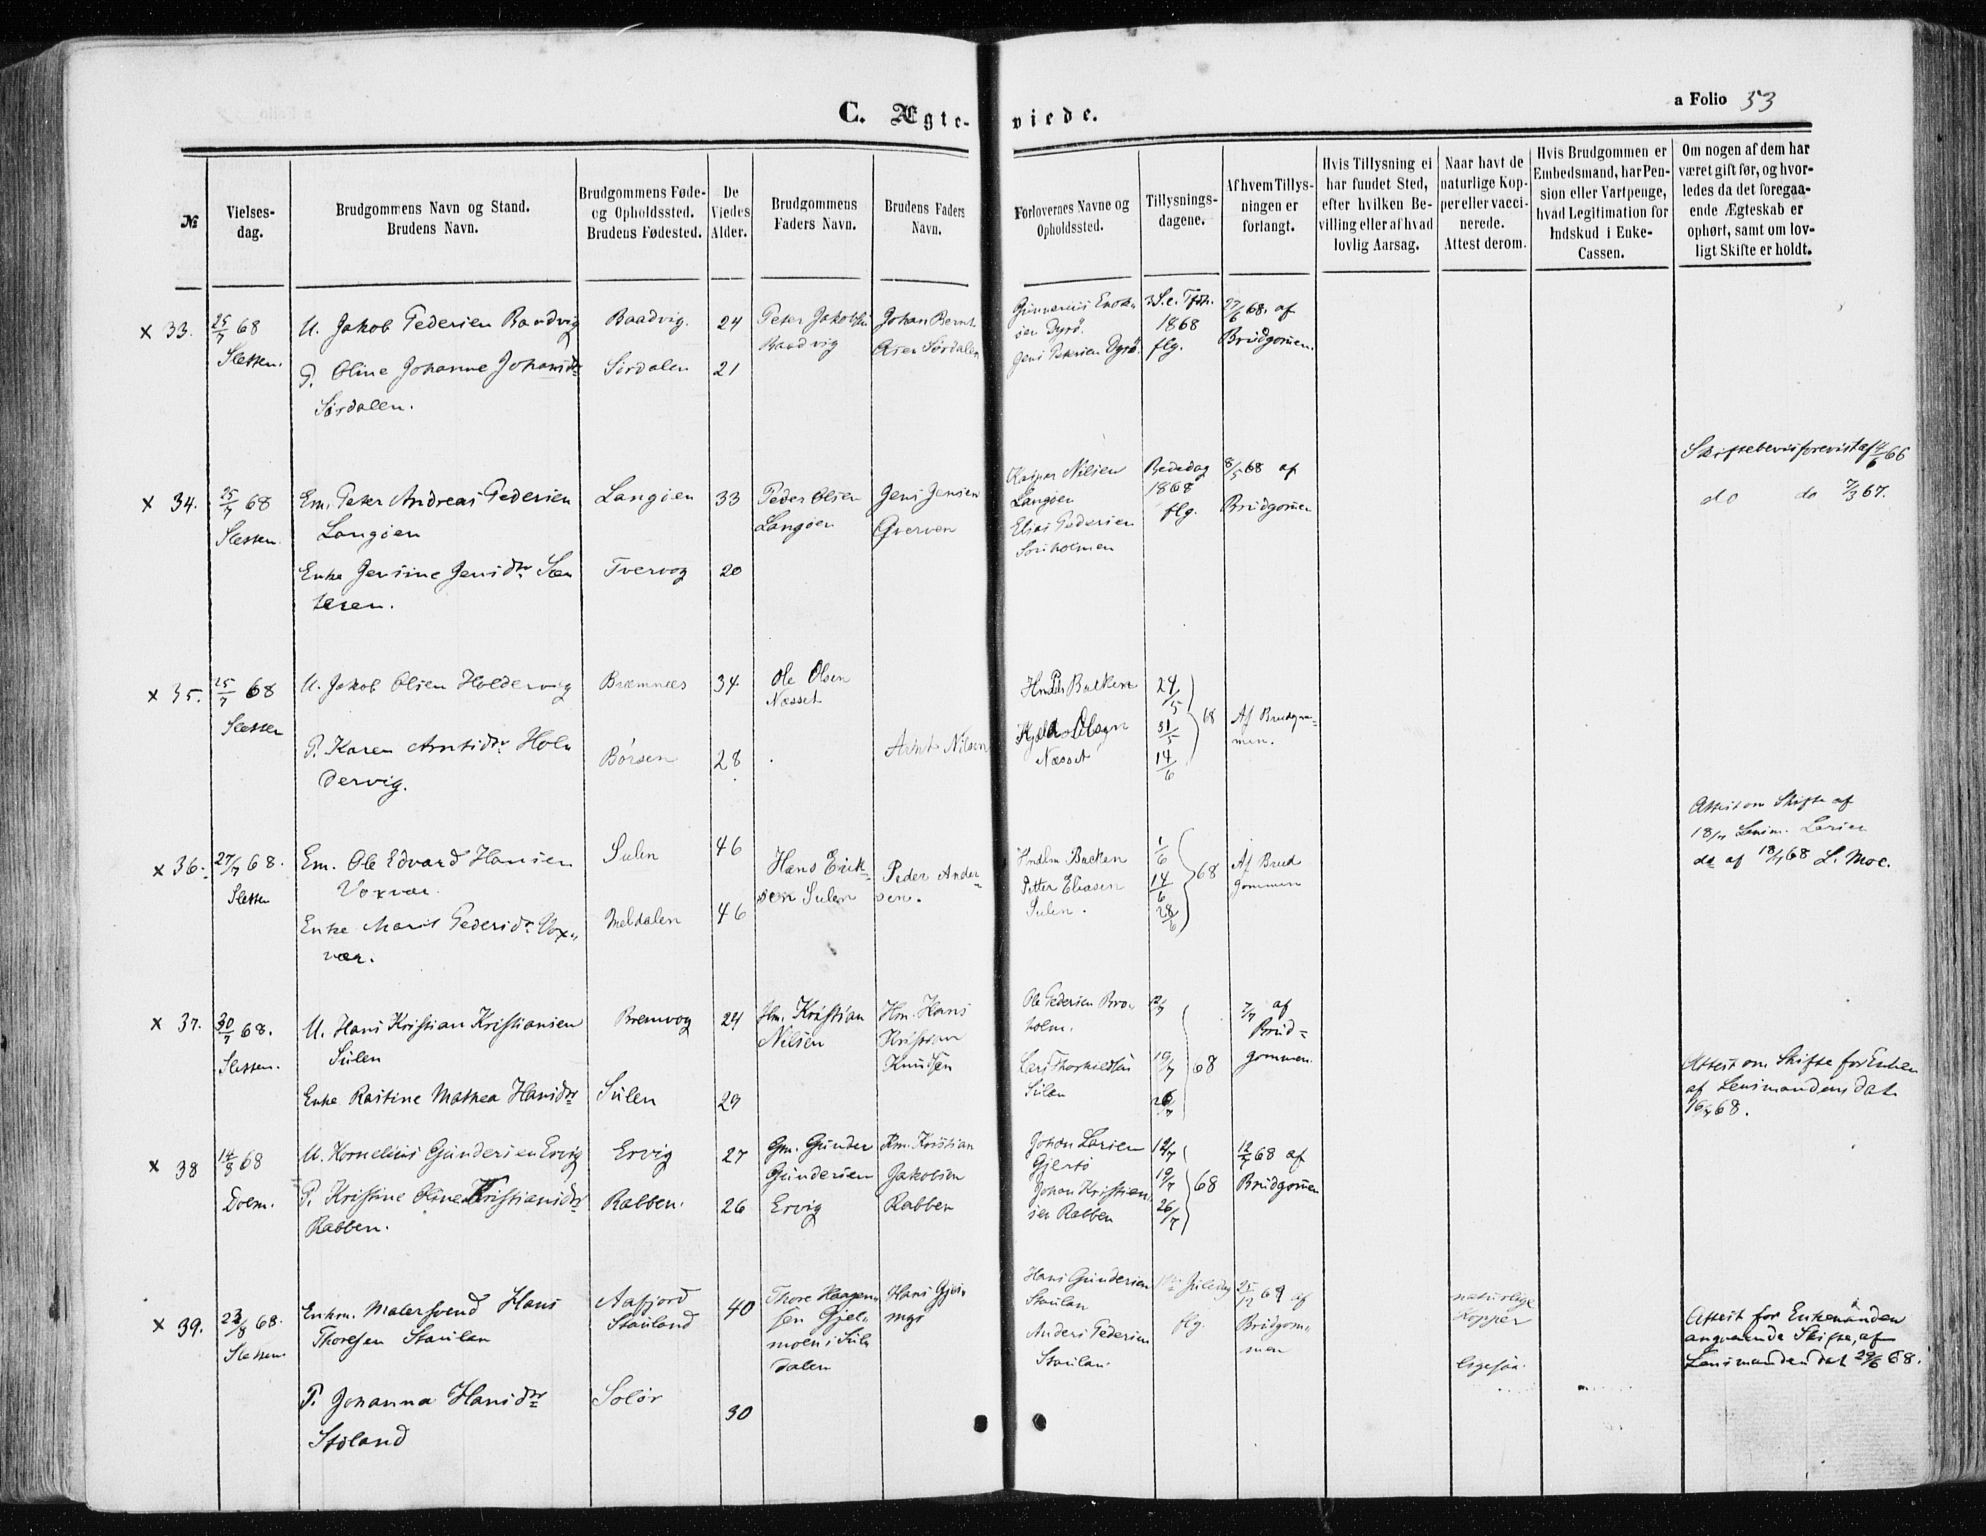 a Folio 53
C. Ægte- viede.
№
Vielses-
dag.
Brudgommens Navn og Stand.
Brudens Navn.
Brudgommens Føde-
og Opholdssted.
Brudens Fødested.
De
Viedes
Alder.
Brudgommens
Faders Navn.
Brudens Faders
Navn.
Forlovernes Navne og
Opholdssted.
Tillysnings-
dagene.
Af hvem Tillys-
ningen er
forlangt.
Hvis Tillysning ei
har fundet Sted,
efter hvilken Be-
villing eller af hvad
lovlig Aarsag.
Naar havt de
naturlige Kop-
per eller vacci-
nerede.
Attest derom.
Hvis Brudgommen er
Embedsmand, har Pen-
sion eller Vartpenge,
hvad Legitimation for
Indskud i Enke-
Cassen.
Om nogen af dem har
været gift før, og hvor-
ledes da det foregaa-
ende Ægteskab er
ophørt, samt om lov-
ligt Skifte er holdt.
x 33.
25/7 68
Sletten.
U. Jakob Pedersen Baadvig
P. Oline Johanne Johansdr
Sørdalen.
Baadvig.
Sørdalen
24
21
Peter Jakobsen
Baadvig
Johan Bernt
Olsen Sørdalen
Gunnerius Enok-
sen Dyrø.
Jens Petersen Dyrø.
1868
flg.
27/6 68. af
Brudgomen.
x 34.
25/7 68
Sletten
Em. Peter Andreas Pedersen
Langøen
Enke Jensine Jensdr Sæ
teren.
Langøen
Tvervog
33
20
Peder Olsen
Langøen
Jens Jensen
Øverven
Kasper Nilsen
Langøen
Elias Pedersen
Bededag
1868
flg.
8/5 68 af
Brudgomen
Skiftebevis forevist af 4/6 66
do do 7/3 67.
x 35.
25/7 68
Sletten
U. Jakob Olsen Holdervig
P. Karen Arntsdr Hol-
dervig.
Bræmnes
Børsen
34
28
Ole Olsen
Næsset
Arnt Nilsen
Bakken
Olsen
Næsset
24/5
31/5
14/6
68
Af Brudgom-
men.
x 36.
27/7 68.
Sletten
Em. Ole Edvard Hansen
Voxvar.
Enke Marit Pedersdr Vox-
vær.
Sulen
Meldalen
46
46
Hans Erik-
sen Sulen
Peder Ander-
sen.
Bakken
Petter Eliasen
Sulen.
1/6
14/6
28/6
68
Af Brud
gommen
Attest om Skifte af
18/7 Lensm. Larsen
do af 18/7 68 L. Moe.
x 37.
30/7 68.
Sletten.
U. Hans Kristian Kristiansen
Sulen
Enke Rastine Mathea Hansdr
Bremvog
Sulen
24
29
Hm. Kristian
Nilsen
Hm. Hans
Kristian
Knudsen
Ole Pedersen Bro-
holm.
Carl Thorkildsen
Sulen
12/7
19/7
26/7
68
7/7 af
Brud-
gommen.
Attest om Skifte for Enken
af Lensmanden dat
16/7 68.
x 38
14/8 68
Dolm.
U. Kornelius Gundersen Ervig
P. Kristine Oline Kristiansdr
Rabben.
Ervig
Rabben.
27
26
Gm. Gunder
Gundersen
Ervig
Km. Kristian
Jakobsen
Rabben
Johan Larsen
Gjertø
Johan Kristian-
sen Rabben
12/7
19/7
26/7
68
12/7 68 af
Brudgomen
x 39.
23/8 68.
Sletten.
Enkm. Malersvend Hans
Thoresen Staulan
P. Johanna Hansdr
Støland
Aafjord
Stauland
Solør
40
30
Thore Haagen-
sen Gjel-
moen i Sul-
dalen
Hans Gjes-
mgr
Hans Gundersen
Staulan
Anders Pedersen
Staulan.
1ste Juledag
flg.
25/12 67 af
Brudgom-
men
naturlige
Kopper
ligesaa.
Attest for Enkemanden
angaaende Skifte, af
Lensmanden dat 29/6 68.